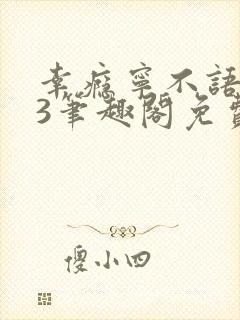 幸瘾寧不語
3筆趣閣免費
傻小四